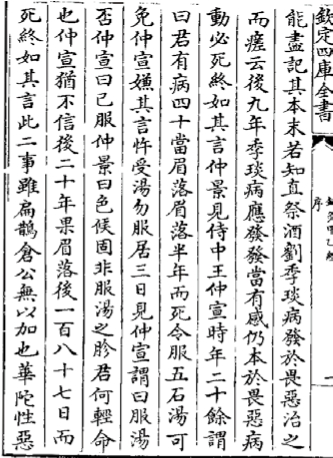 欽定四庫全書
序
能盡記其本末若知直祭酒劉季琰病發於畏惡治之
而瘥云後九年季琰病應發發當有感仍本於畏惡病
動必死終如其言仲景見侍中王仲宣時年二十餘謂
曰君有病四十當眉落眉落半年而死令服五石湯可
免仲宣嫌其言忤受湯勿服居三日見仲宣謂曰服湯
否仲宣曰已服仲景曰色候固非服湯之胗君何輕命
也仲宣猶不信後二十年果眉落後一百八十七日而
死終如其言此二事雖扁鵲倉公無以加也華陀性惡